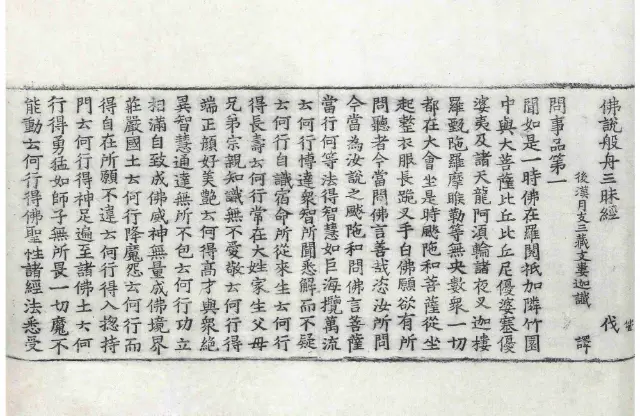 佛說般舟三昧經 伐
後漢月支三藏支婁迦讖 譯
問事品第一
聞如是一時佛在羅閱祇加隣竹園
中與大菩薩比丘比丘尼優婆塞優
婆夷及諸天龍阿須輪諸夜叉迦樓
羅甄陁羅摩睺勒等無央數衆一切
都在大會坐是時颰陁和菩薩從坐
起整衣服長跪叉手白佛願欲有所
問聽者今當問佛言善哉恣汝所問
今當為汝說之颰陁和問佛言菩薩
當行何等法得智慧如巨海攬萬流
云何行博達衆智所聞悉解而不疑
云何行自識宿命所從來生云何行
得長壽云何行常在大姓家生父母
兄弟宗親知識無不愛敬云何行得
端正顔好美艶云何得高才與衆絕
異智慧通達無所不包云何行功立
相滿自致成佛威神無量成佛境界
莊嚴國土云何行降魔怨云何行而
得自在所願不違云何行得入揔持
門云何行得神足遍至諸佛土云何
行得勇猛如師子無所畏一切魔不
能動云何行得佛聖性諸經法悉受